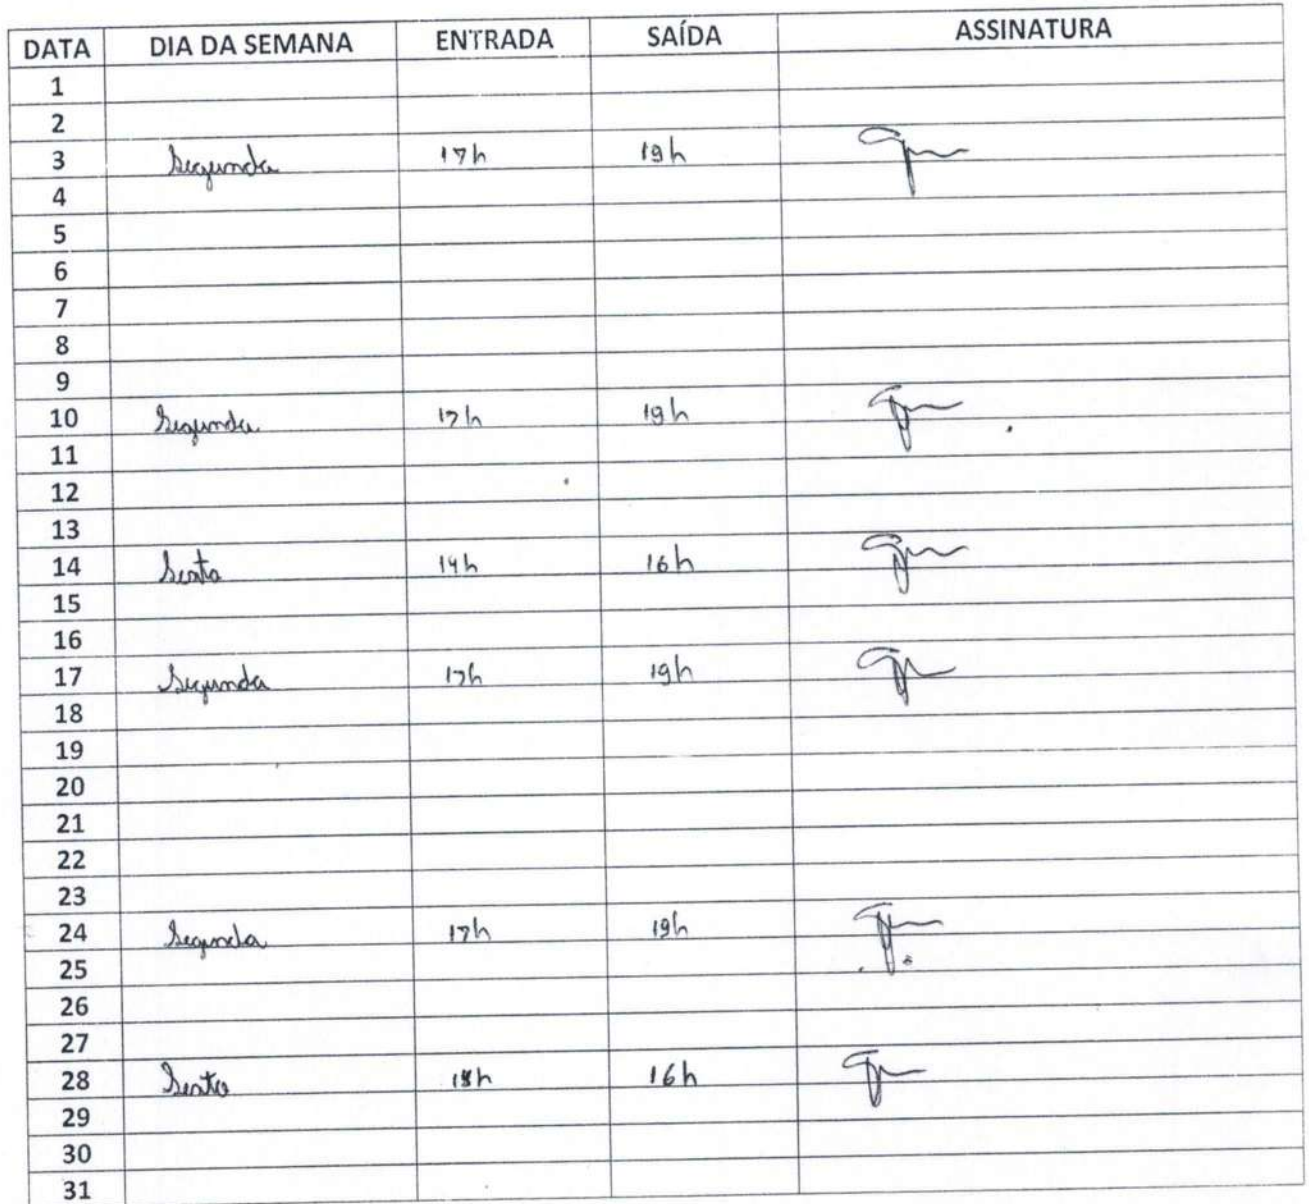 DATA DIA DA SEMANA ENTRADA SAÍDA ASSINATURA
1
2
3 Segunda 17h 19h
4
5
6
7
8
9
10 Segunda 17h 19h
11
12
13
14 Sexta 14h 16h
15
16
17 Segunda 17h 19h
18
19
20
21
22
23
24 Segunda 17h 19h
25
26
27
28 Sexta 16h
29
30
31